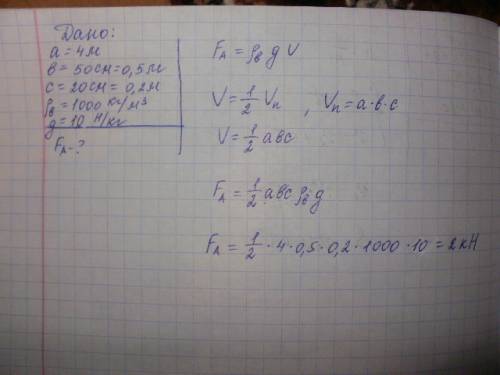 Дано:
a = 4 м
в = 50 см = 0,5 м
с = 20 см = 0,2 м
ρв = 1000 кг/м³
g = 10 Н/кг
FA - ?
FA = ρв g V
V = 1/2 Vп , Vп = a·в·с
V = 1/2 aвс
FA = 1/2 aвс ρв g
FA = 1/2 · 4 · 0,5 · 0,2 · 1000 · 10 = 2 кН